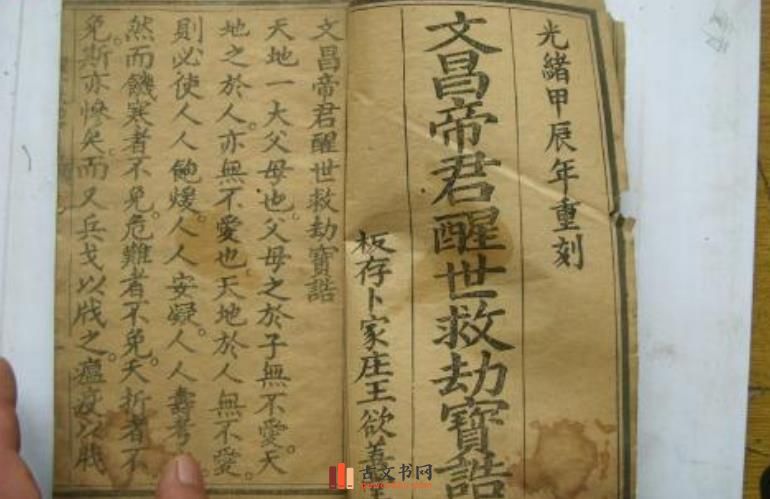 光緒甲辰年重刻
文昌帝君醒世救劫寶誥
板存卜家庄王欲善
文昌帝君醒世救劫寶誥
天地一大父母也。父母之於子無不愛。天
地之於人。亦無不愛也。天地於人無不愛。
則必使人人飽煖。人人安凝。人人壽考。
然而饑寒者不免。危難者不免。夭折者不
免。斯亦慘矣。而又兵戈以戕之。瘟疫以戕
古文书网